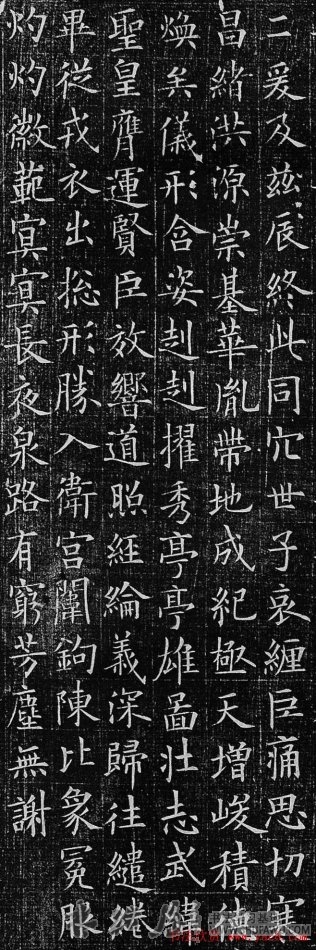 二爰及兹辰終此同穴世子哀纏巨痛思切寒
昌緒洪源崇基華胤帶地成紀極天增峻積德
煥矣儀形含姿赳赳擢秀亭亭雄啚壯志武
聖皇膺運賢臣效響道照經綸義深歸往繾綣
畢從戎衣出摠形勝入衛宮闈鉤陳比象冕服
灼灼徽範寞寞長夜泉路有窮芳塵無謝